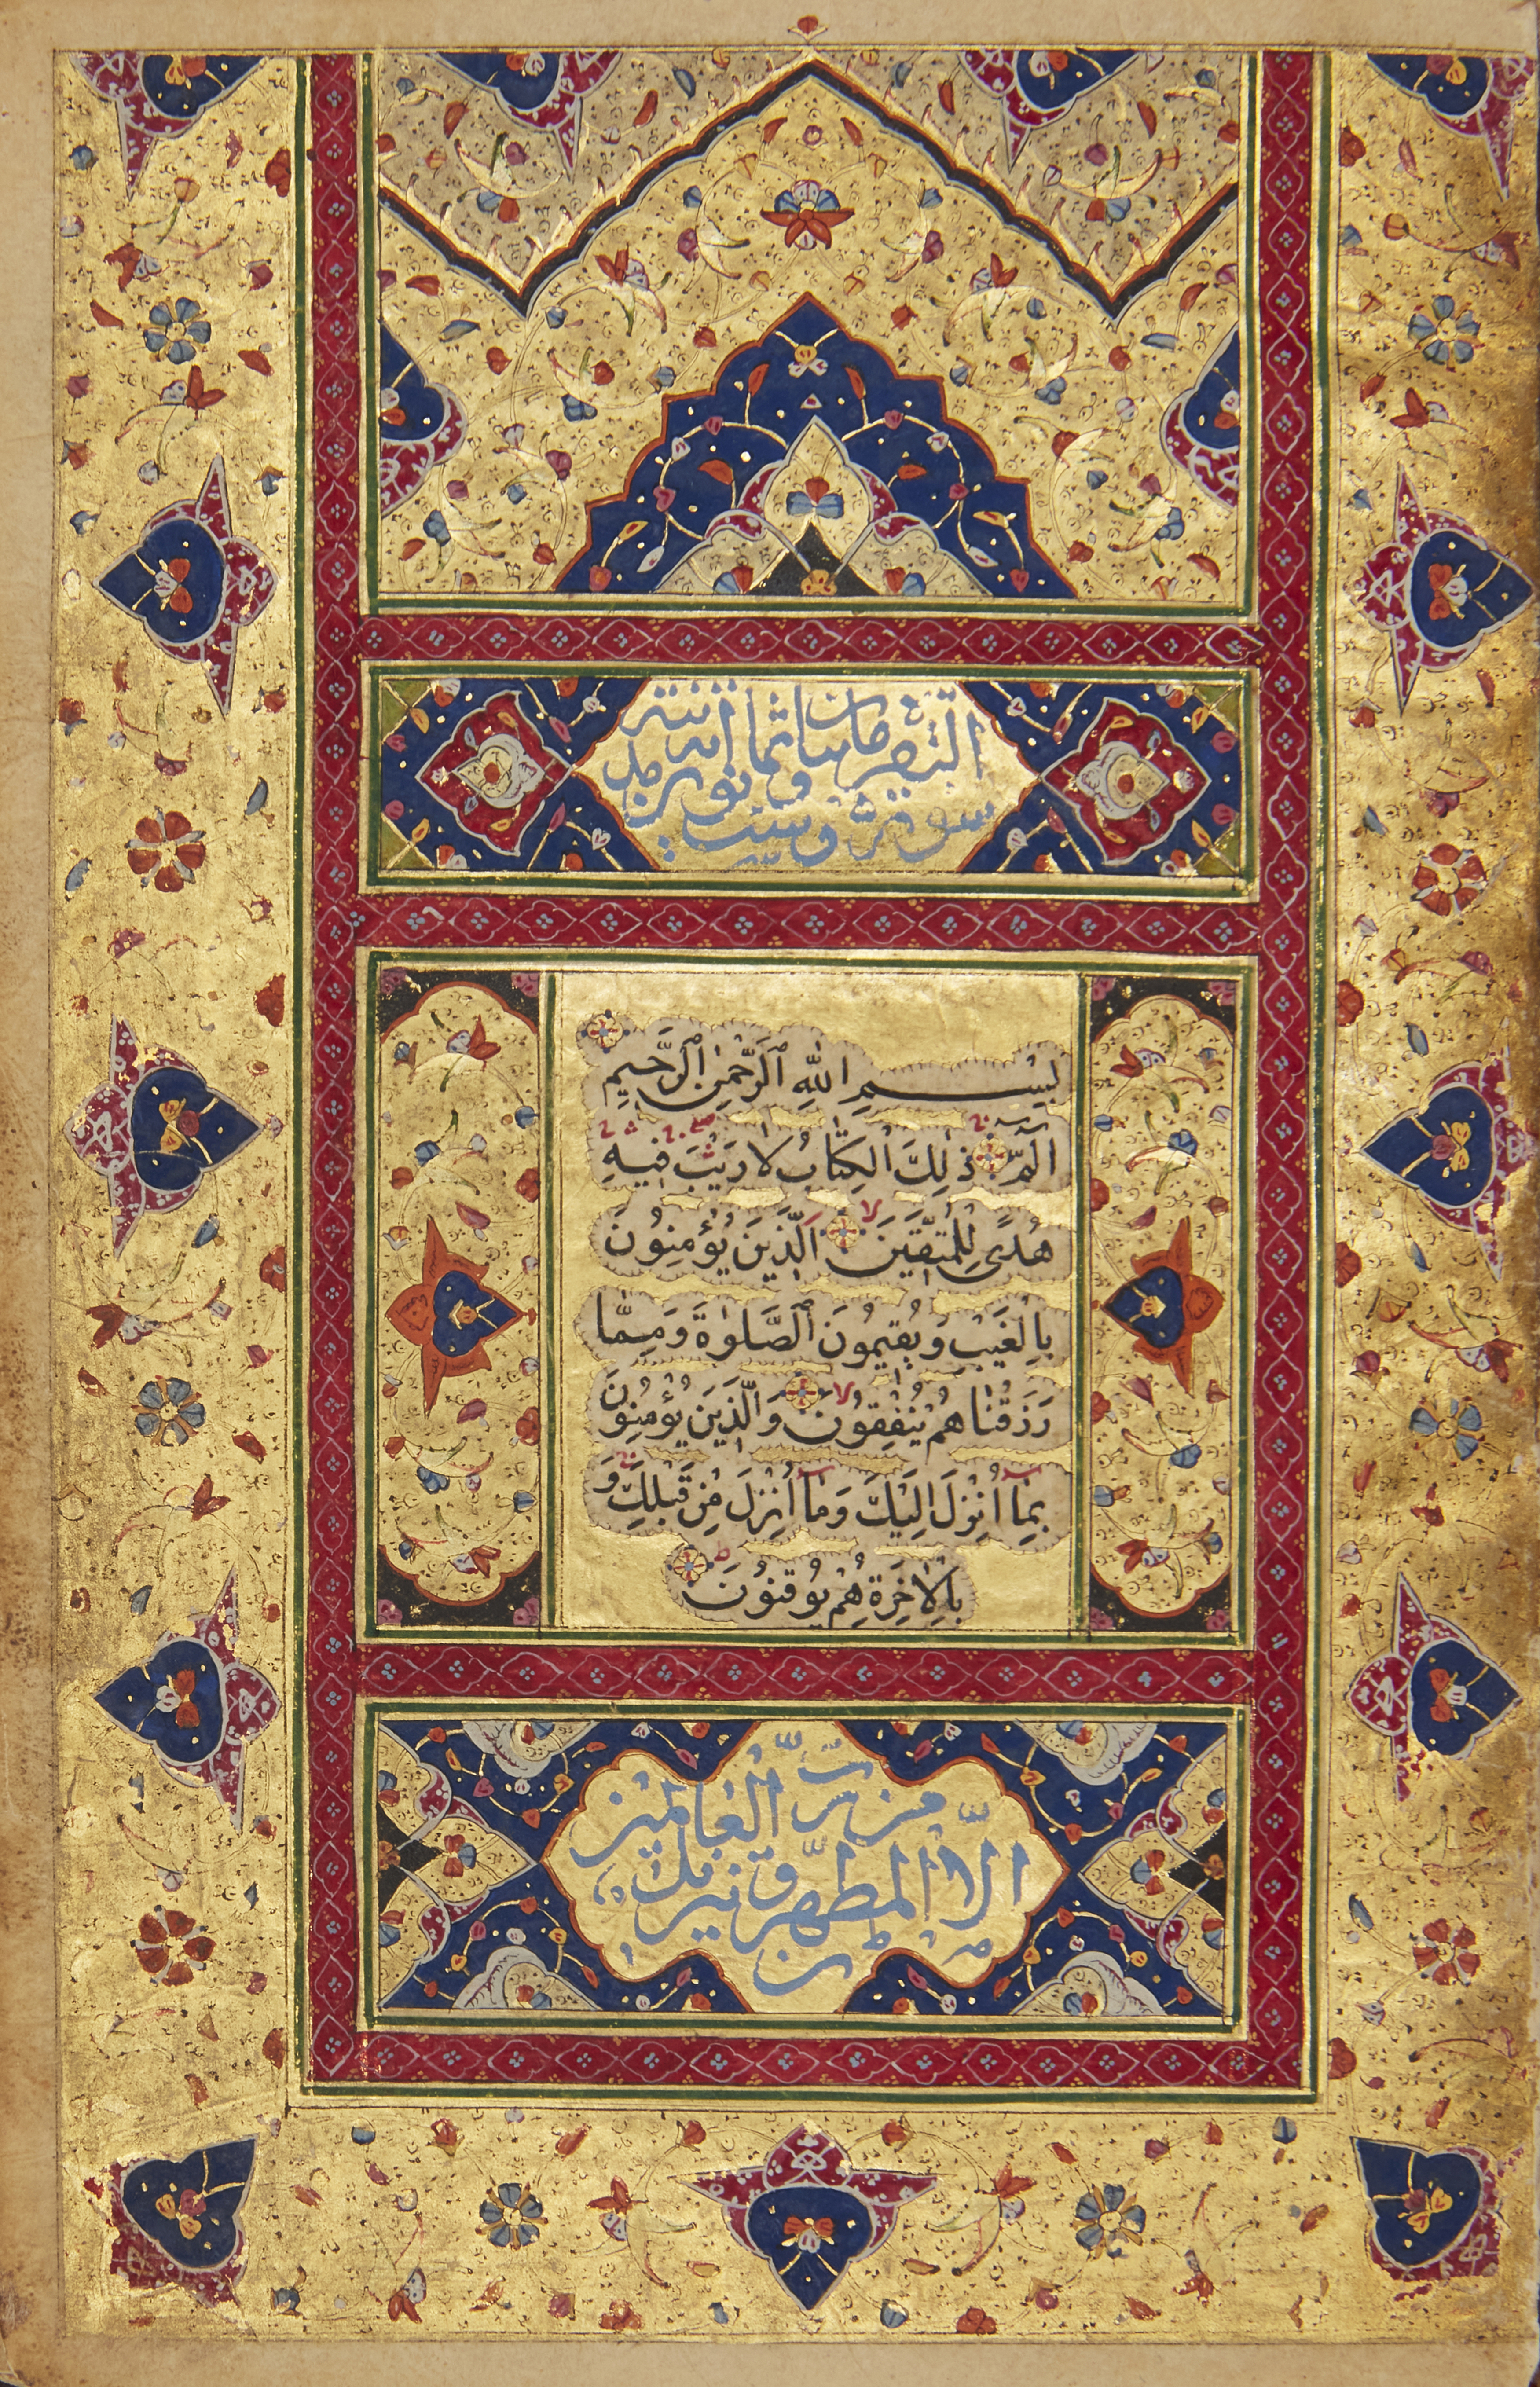 سورة البقرة مائتان وست وثمانون اية
بِسْمِ اللهِ الرَّحْمٰنِ الرَّحِيمِ
الٓمّٓ ذٰلِكَ الْكِتَابُ لَا رَيْبَ فِيهِ
هُدًى لِلْمُتَّقِينَ الَّذِينَ يُؤْمِنُونَ
بِالْغَيْبِ وَيُقِيمُونَ الصَّلٰوةَ وَمِمَّا
رَزَقْنَاهُمْ يُنْفِقُونَ وَالَّذِينَ يُؤْمِنُونَ
بِمَا أُنْزِلَ إِلَيْكَ وَمَا أُنْزِلَ مِنْ قَبْلِكَ وَ
بِالْاٰخِرَةِ هُمْ يُوقِنُونَ
الّا المطهّرون تنزيل
من ربّ العالمين